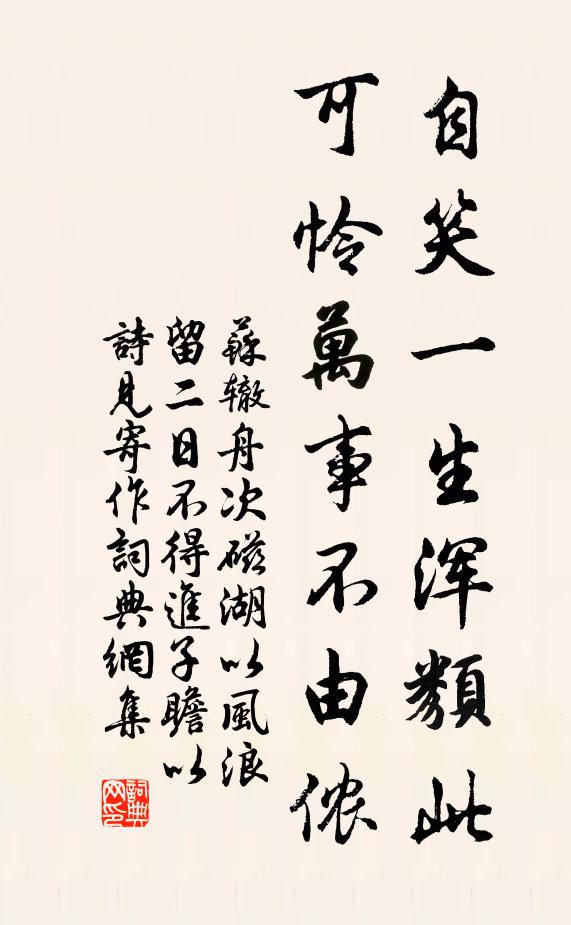 自笑一生浑類此
可怜萬事不由侬
蘇辙舟次磁湖以風浪
留二日不得進子瞻以
詩見寄作詞典網集
詞典网印